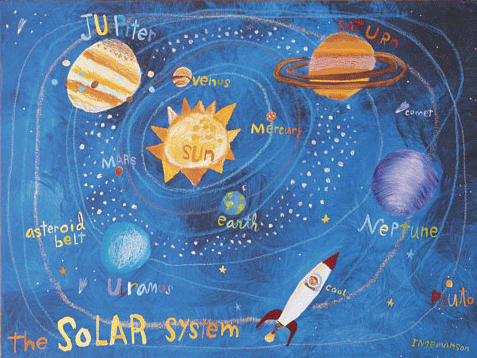 JUPiter
SATURn
Venus
comet
Mercury
sun
MARS
earth
Neptune
asteroid
belt
Uranus
cool
Pluto
the SOLAR SYSTEM